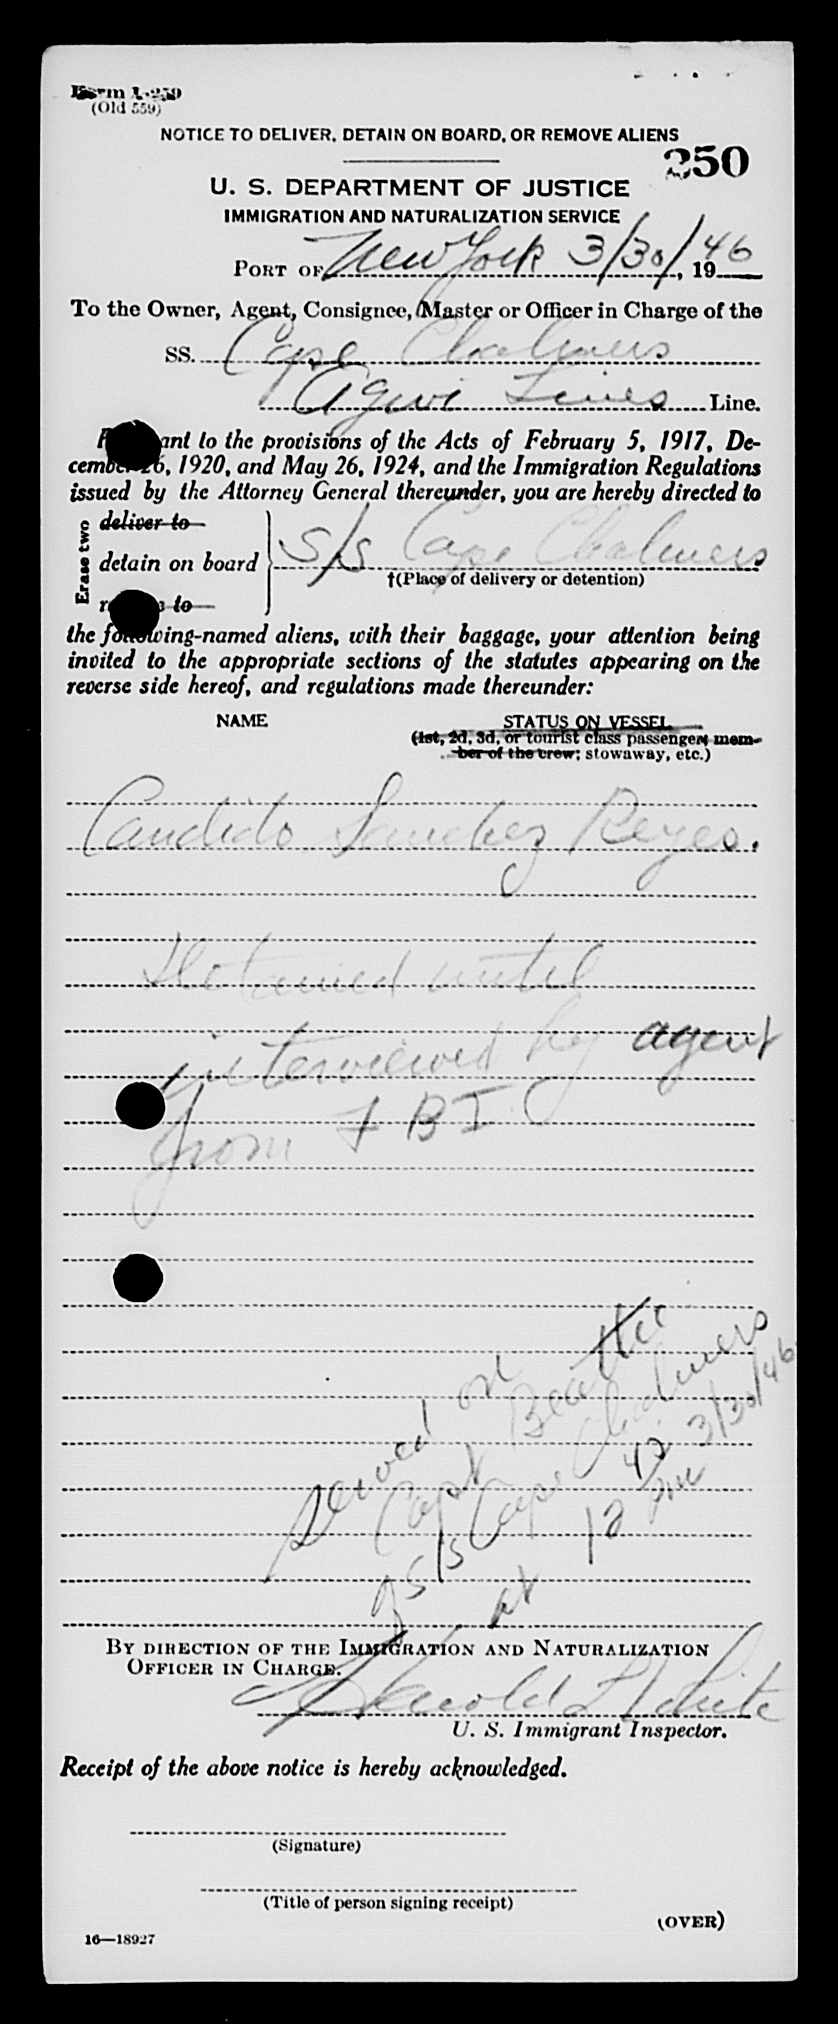 Form I-259
(Old 559)
NOTICE TO DELIVER, DETAIN ON BOARD, OR REMOVE ALIENS
250
U. S. DEPARTMENT OF JUSTICE
IMMIGRATION AND NATURALIZATION SERVICE
PORT OF New York 3/30/, 1946
To the Owner, Agent, Consignee, Master or Officer in Charge of the
SS. Cape Chalmers
Agwi Lines Line.
ant to the provisions of the Acts of February 5, 1917, De-
cember 26, 1920, and May 26, 1924, and the Immigration Regulations
issued by the Attorney General thereunder, you are hereby directed to
Erase two
deliver to
detain on board S/S Cape Chalmers
†(Place of delivery or detention)
to
the following-named aliens, with their baggage, your attention being
invited to the appropriate sections of the statutes appearing on the
reverse side hereof, and regulations made thereunder:
NAME STATUS ON VESSEL
(1st, 2d, 3d, or tourist class passenger; mem-
ber of the crew; stowaway, etc.)
Candido Sanchez Reyes.
Detained until
interviewed by agent
from FBI
Served on
Capt Beattie
of S/S Cape Chalmers
at 12 42 pm 3/30/46
BY DIRECTION OF THE IMMIGRATION AND NATURALIZATION
OFFICER IN CHARGE.
Harold White
U. S. Immigrant Inspector.
Receipt of the above notice is hereby acknowledged.
(Signature)
(Title of person signing receipt)
(OVER)
16—18927